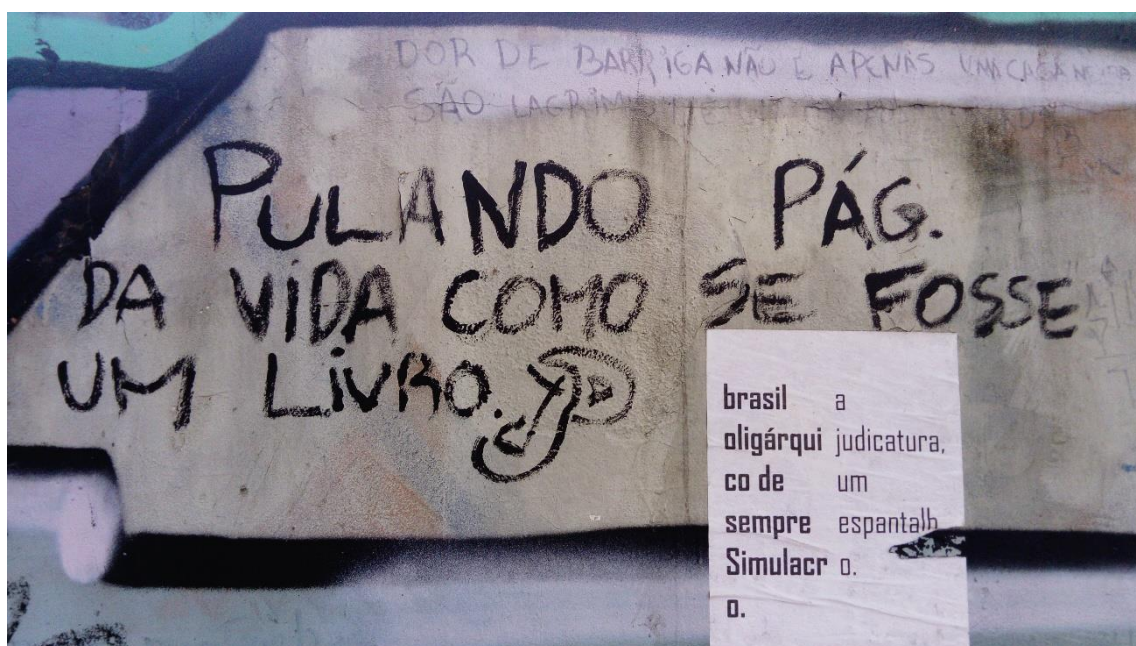 DOR DE BARRIGA NÃO É APENAS UMA
SÃO
PULANDO PÁG.
DA VIDA COMO SE FOSSE
UM LIVRO.
brasil
oligárqui
co de
sempre
Simulacr
o.
a
judicatura,
um
espantalh
o.